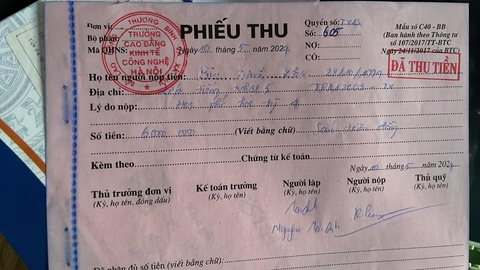 Đơn vị:
Bộ phận:
Mã QHNS:
THƯƠNG BINH
TRƯỜNG
CAO ĐẲNG
KINH TẾ
CÔNG NGHỆ
HÀ NỘI
PHIẾU THU
Ngày 10 tháng 5 năm 2024
Quyển số:
Số: 605
NỢ:
CÓ:
Mẫu số C40 - BB
(Ban hành theo Thông tư
số 107/2017/TT-BTC
ngày 24/11/2017 của BTC)
ĐÃ THU TIỀN
Họ tên người nộp tiền:
Địa chỉ:
Lý do nộp: Học phí học kỳ 4
Số tiền: 6.000.000 (Viết bằng chữ) Sáu triệu đồng
Kèm theo Chứng từ kế toán
Ngày 10 tháng 5 năm 2024
Thủ trưởng đơn vị
(Ký, họ tên, đóng dấu)
Kế toán trưởng
(Ký, họ tên)
Người lập
(Ký, họ tên)
Người nộp
(Ký, họ tên)
Thủ quỹ
(Ký, họ tên)
Đã nhận đủ số tiền (viết bằng chữ)